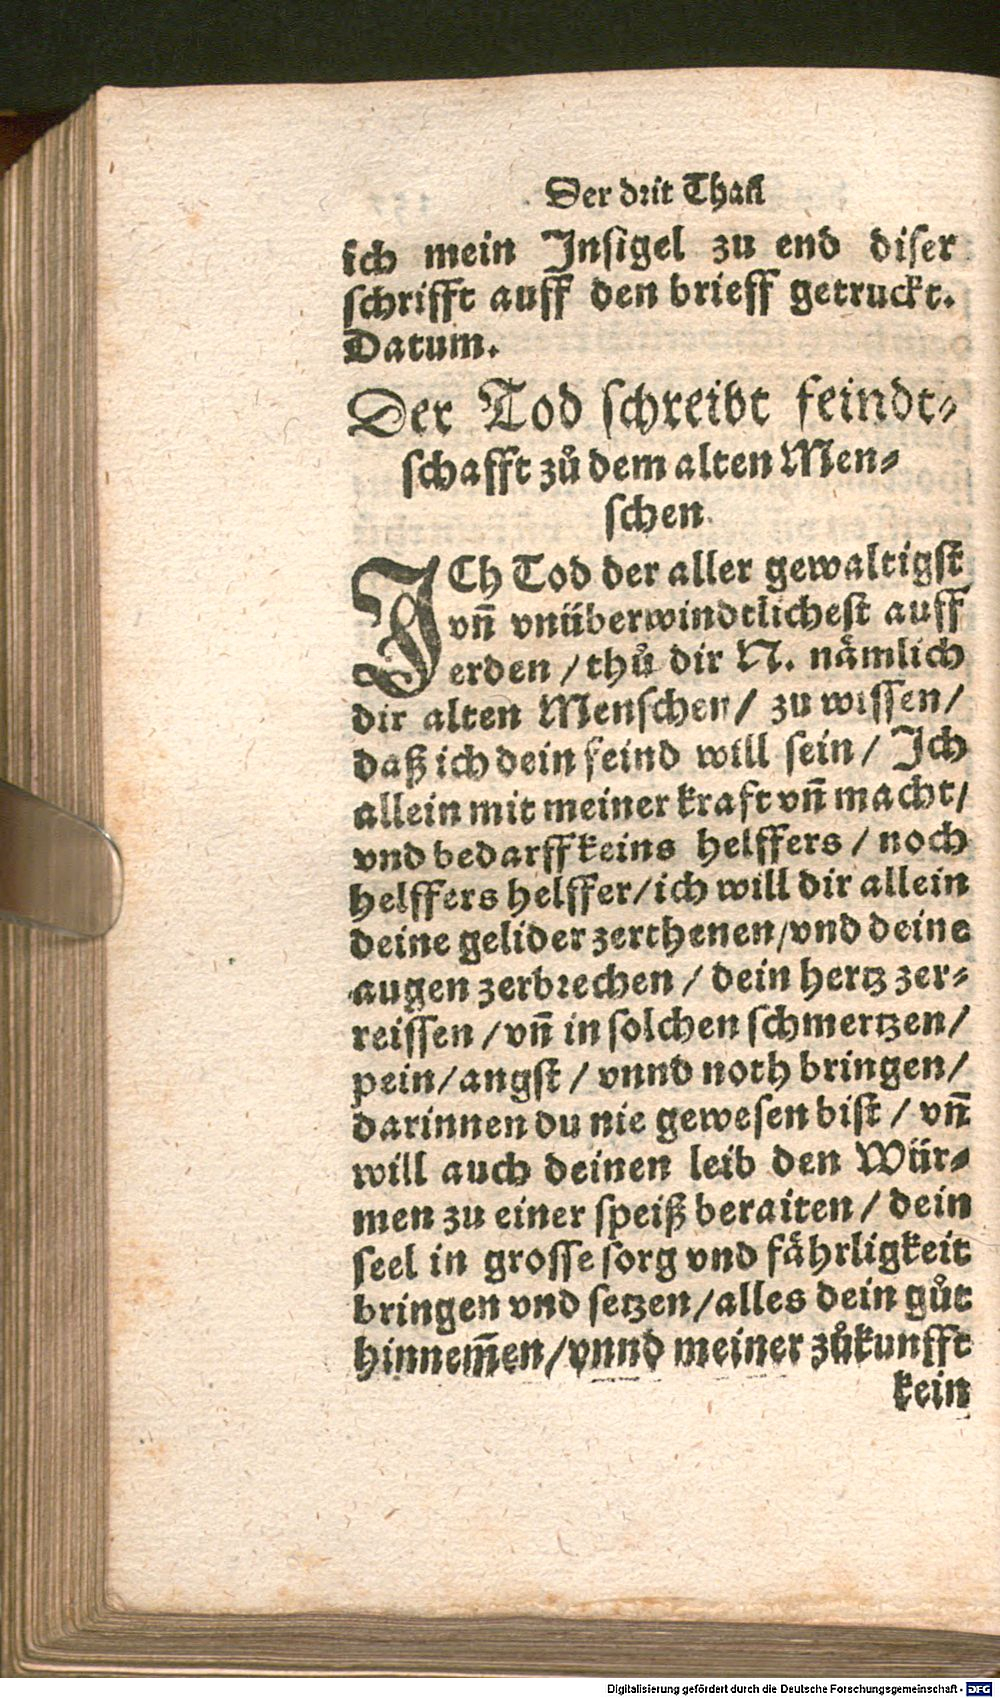 Der drit Thail
ich mein Insigel zu end diser
schrifft auff den brieff getruckt.
Datum.
Der Tod schreibt feindt-
schafft zů dem alten Men-
schen.
ICh Tod der aller gewaltigst
vñ vnüberwindtlichest auff
erden / thů dir N. nämlich
dir alten Menschen / zu wissen /
daß ich dein feind will sein / Ich
allein mit meiner kraft vñ macht /
vnd bedarff keins helffers / noch
helffers helffer / ich will dir allein
deine gelider zerthenen / vnd deine
augen zerbrechen / dein hertz zer-
reissen / vñ in solchen schmertzen /
pein / angst / vnnd noth bringen /
darinnen du nie gewesen bist / vñ
will auch deinen leib den Wür-
men zu einer speiß beraiten / dein
seel in grosse sorg vnd fährligkeit
bringen vnd setzen / alles dein gůt
hinnem̃en / vnnd meiner zůkunfft
kein
Digitalisierung gefördert durch die Deutsche Forschungsgemeinschaft - DFG